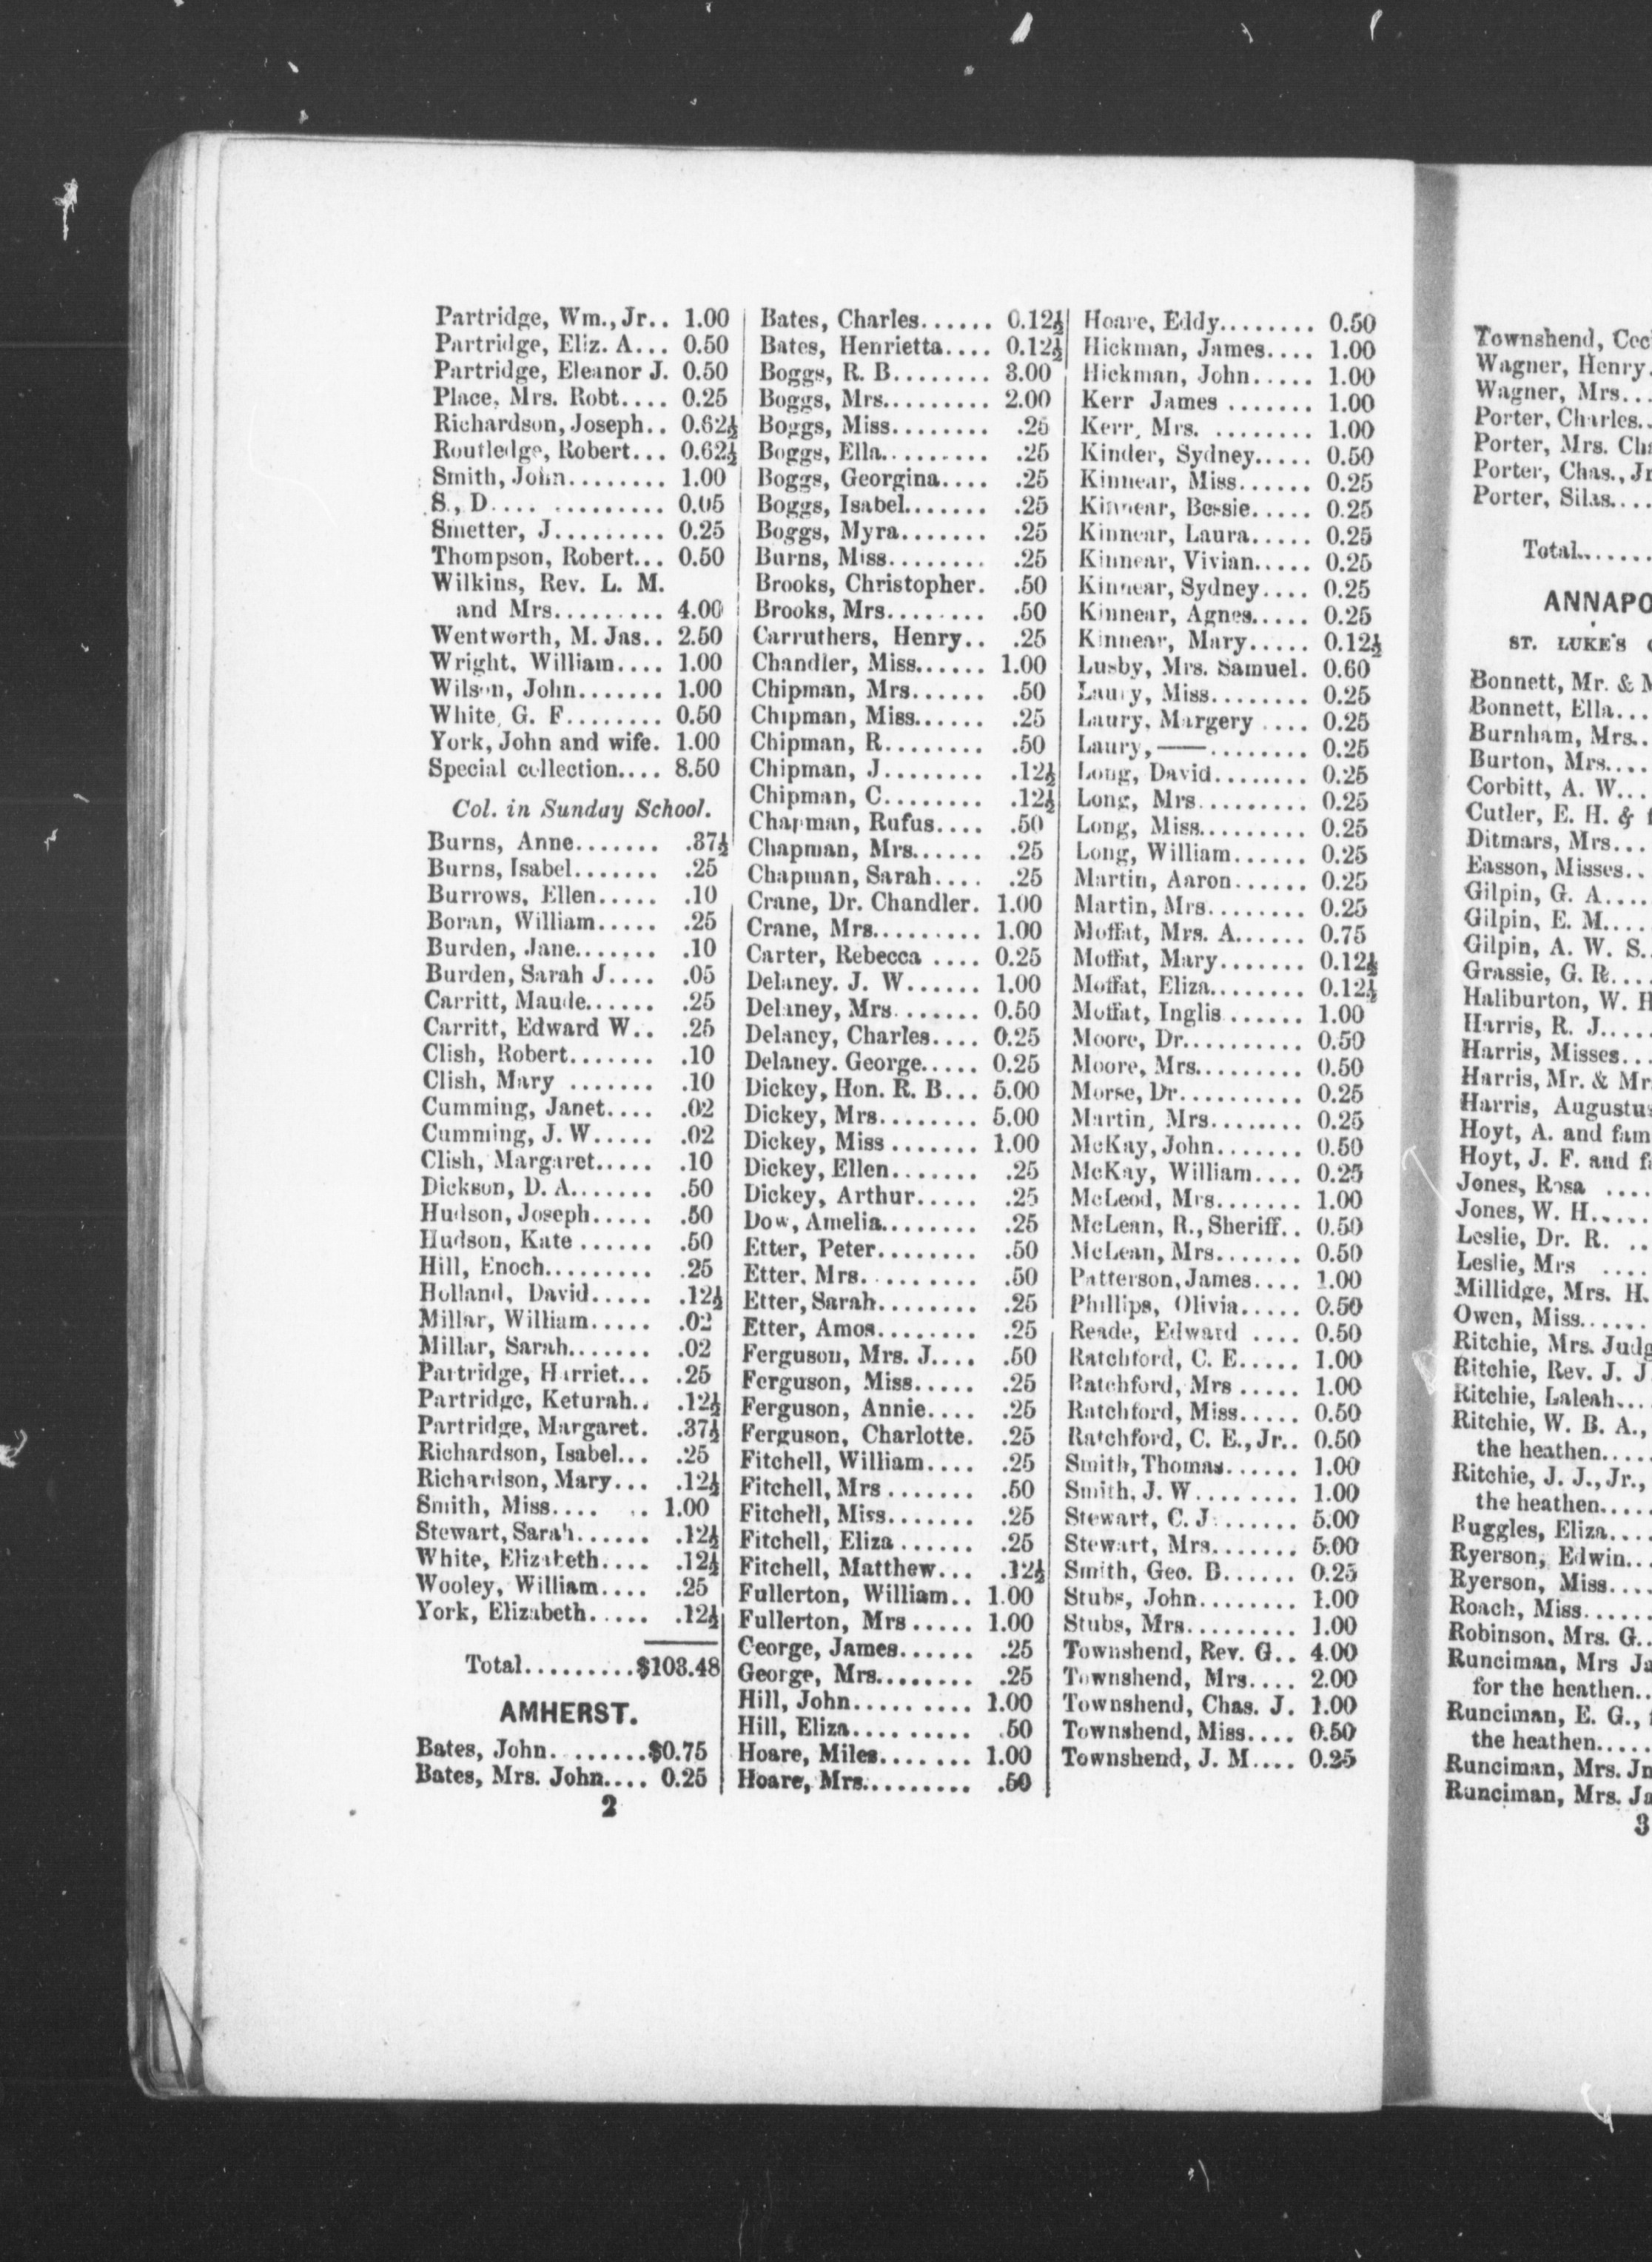 Partridge, Wm., Jr.. 1.00
Partridge, Eliz. A... 0.50
Partridge, Eleanor J. 0.50
Place, Mrs. Robt.... 0.25
Richardson, Joseph.. 0.62½
Routledge, Robert... 0.62½
Smith, John........ 1.00
S., D.... ......... 0.05
Smetter, J......... 0.25
Thompson, Robert... 0.50
Wilkins, Rev. L. M.
and Mrs.......... 4.00
Wentworth, M. Jas.. 2.50
Wright, William.... 1.00
Wilson, John....... 1.00
White, G. F........ 0.50
York, John and wife. 1.00
Special collection.... 8.50
Col. in Sunday School.
Burns, Anne....... .37½
Burns, Isabel....... .25
Burrows, Ellen..... .10
Boran, William..... .25
Burden, Jane....... .10
Burden, Sarah J.... .05
Carritt, Maude...... .25
Carritt, Edward W.. .25
Clish, Robert....... .10
Clish, Mary ....... .10
Cumming, Janet.... .02
Cumming, J. W..... .02
Clish, Margaret..... .10
Dickson, D. A....... .50
Hudson, Joseph..... .50
Hudson, Kate ...... .50
Hill, Enoch......... .25
Holland, David..... .12½
Millar, William..... .02
Millar, Sarah....... .02
Partridge, Harriet... .25
Partridge, Keturah.. .12½
Partridge, Margaret. .37½
Richardson, Isabel... .25
Richardson, Mary... .12½
Smith, Miss.... .. 1.00
Stewart, Sarah...... .12½
White, Elizabeth.... .12½
Wooley, William.... .25
York, Elizabeth..... .12½
Total.........$103.48
AMHERST.
Bates, John. .......$0.75
Bates, Mrs. John.... 0.25
2
Bates, Charles...... 0.12½
Bates, Henrietta.... 0.12½
Boggs, R. B........ 3.00
Boggs, Mrs......... 2.00
Boggs, Miss........ .25
Boggs, Ella......... .25
Boggs, Georgina.... .25
Boggs, Isabel....... .25
Boggs, Myra....... .25
Burns, Miss........ .25
Brooks, Christopher. .50
Brooks, Mrs........ .50
Carruthers, Henry.. .25
Chandler, Miss...... 1.00
Chipman, Mrs...... .50
Chipman, Miss...... .25
Chipman, R........ .50
Chipman, J........ .12½
Chipman, C........ .12½
Chapman, Rufus.... .50
Chapman, Mrs...... .25
Chapman, Sarah.... .25
Crane, Dr. Chandler. 1.00
Crane, Mrs......... 1.00
Carter, Rebecca .... 0.25
Delaney. J. W...... 1.00
Delaney, Mrs....... 0.50
Delaney, Charles.... 0.25
Delaney. George..... 0.25
Dickey, Hon. R. B... 5.00
Dickey, Mrs........ 5.00
Dickey, Miss ....... 1.00
Dickey, Ellen....... .25
Dickey, Arthur..... .25
Dow, Amelia........ .25
Etter, Peter........ .50
Etter. Mrs. ........ .50
Etter, Sarah........ .25
Etter, Amos........ .25
Ferguson, Mrs. J.... .50
Ferguson, Miss..... .25
Ferguson, Annie.... .25
Ferguson, Charlotte. .25
Fitchell, William.... .25
Fitchell, Mrs ....... .50
Fitchell, Miss....... .25
Fitchell, Eliza ...... .25
Fitchell, Matthew... .12½
Fullerton, William.. 1.00
Fullerton, Mrs ..... 1.00
Ceorge, James...... .25
George, Mrs........ .25
Hill, John.......... 1.00
Hill, Eliza.......... .50
Hoare, Miles....... 1.00
Hoare, Mrs......... .50
Hoare, Eddy........ 0.50
Hickman, James.... 1.00
Hickman, John..... 1.00
Kerr James ....... 1.00
Kerr, Mrs. ........ 1.00
Kinder, Sydney..... 0.50
Kinnear, Miss...... 0.25
Kinnear, Bessie..... 0.25
Kinnear, Laura..... 0.25
Kinnear, Vivian..... 0.25
Kinnear, Sydney.... 0.25
Kinnear, Agnes..... 0.25
Kinnear, Mary..... 0.12½
Lusby, Mrs. Samuel. 0.60
Laury, Miss........ 0.25
Laury, Margery .... 0.25
Laury,——........ 0.25
Long, David........ 0.25
Long, Mrs......... 0.25
Long, Miss......... 0.25
Long, William...... 0.25
Martin, Aaron...... 0.25
Martin, Mrs........ 0.25
Moffat, Mrs. A...... 0.75
Moffat, Mary....... 0.12½
Moffat, Eliza........ 0.12½
Moffat, Inglis ...... 1.00
Moore, Dr.......... 0.50
Moore, Mrs......... 0.50
Morse, Dr.......... 0.25
Martin, Mrs........ 0.25
McKay, John....... 0.50
McKay, William.... 0.25
McLeod, Mrs....... 1.00
McLean, R., Sheriff.. 0.50
McLean, Mrs....... 0.50
Patterson, James.... 1.00
Phillips, Olivia..... 0.50
Reade, Edward .... 0.50
Ratchford, C. E..... 1.00
Ratchford, Mrs ..... 1.00
Ratchford, Miss..... 0.50
Ratchford, C. E., Jr.. 0.50
Smith, Thomas...... 1.00
Smith, J. W........ 1.00
Stewart, C. J....... 5.00
Stewart, Mrs....... 5.00
Smith, Geo. B...... 0.25
Stubs, John........ 1.00
Stubs, Mrs......... 1.00
Townshend, Rev. G.. 4.00
Townshend, Mrs.... 2.00
Townshend, Chas. J. 1.00
Townshend, Miss.... 0.50
Townshend, J. M.... 0.25
Townshend, Cec
Wagner, Henry.
Wagner, Mrs...
Porter, Charles..
Porter, Mrs. Cha
Porter, Chas., Jr
Porter, Silas....
Total.......
ANNAPO
ST. LUKE'S C
Bonnett, Mr. & M
Bonnett, Ella...
Burnham, Mrs..
Burton, Mrs....
Corbitt, A. W...
Cutler, E. H. & f
Ditmars, Mrs...
Easson, Misses..
Gilpin, G. A....
Gilpin, E. M....
Gilpin, A. W. S.
Grassie, G. R....
Haliburton, W. H
Harris, R. J.....
Harris, Misses...
Harris, Mr. & Mr
Harris, Augustus
Hoyt, A. and fam
Hoyt, J. F. and fa
Jones, Rosa ....
Jones, W. H.....
Leslie, Dr. R. ..
Leslie, Mrs ....
Millidge, Mrs. H.
Owen, Miss......
Ritchie, Mrs. Judg
Ritchie, Rev. J. J
Ritchie, Laleah...
Ritchie, W. B. A.,
the heathen....
Ritchie, J. J., Jr.,
the heathen....
Ruggles, Eliza....
Ryerson, Edwin...
Ryerson, Miss....
Roach, Miss......
Robinson, Mrs. G..
Runciman, Mrs Ja
for the heathen..
Runciman, E. G., f
the heathen.....
Runciman, Mrs. Jn
Runciman, Mrs. Ja
3